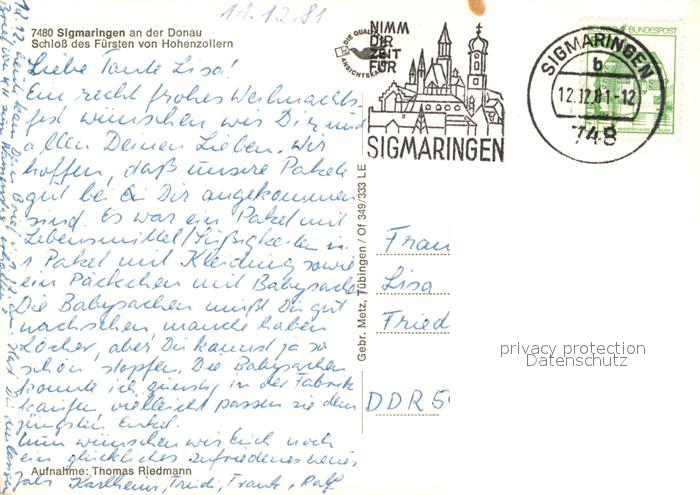 11.12.81
7480 Sigmaringen an der Donau
Schloß des Fürsten von Hohenzollern
Liebe Tante Lisa!
Ein recht frohes Weihnachts-
fest wünschen wir Dir und
allen Deinen Lieben. Wir
hoffen, daß unsere Pakete
gut bei Dir angekommen
sind. Es war ein Paket mit
Lebensmittel/Süßigkeiten
1 Paket mit Kleidung sowie
ein Päckchen mit Babysachen
Die Babysachen mußt Du gut
nachsehen, manche haben
Löcher, aber Du kannst ja so
schön stopfen. Die Babysachen
konnte ich günstig in der Fabrik
kaufen vielleicht passen sie dem
jüngsten Enkel.
Nun wünschen wir Euch noch
ein glückliches zufriedenes neues
Jahr Karlheinz, Trudi, Frank, Ralf
Aufnahme: Thomas Riedmann
Gebr. Metz, Tübingen / Of 349/333 LE
DIE QUALITÄTS
ANSICHTSKARTE
NIMM
DIR
ZEIT
FÜR
SIGMARINGEN
SIGMARINGEN
b
12.12.81-12
748
BUNDESPOST
Frau
Lisa
Fried
DDR 5
privacy protection
Datenschutz